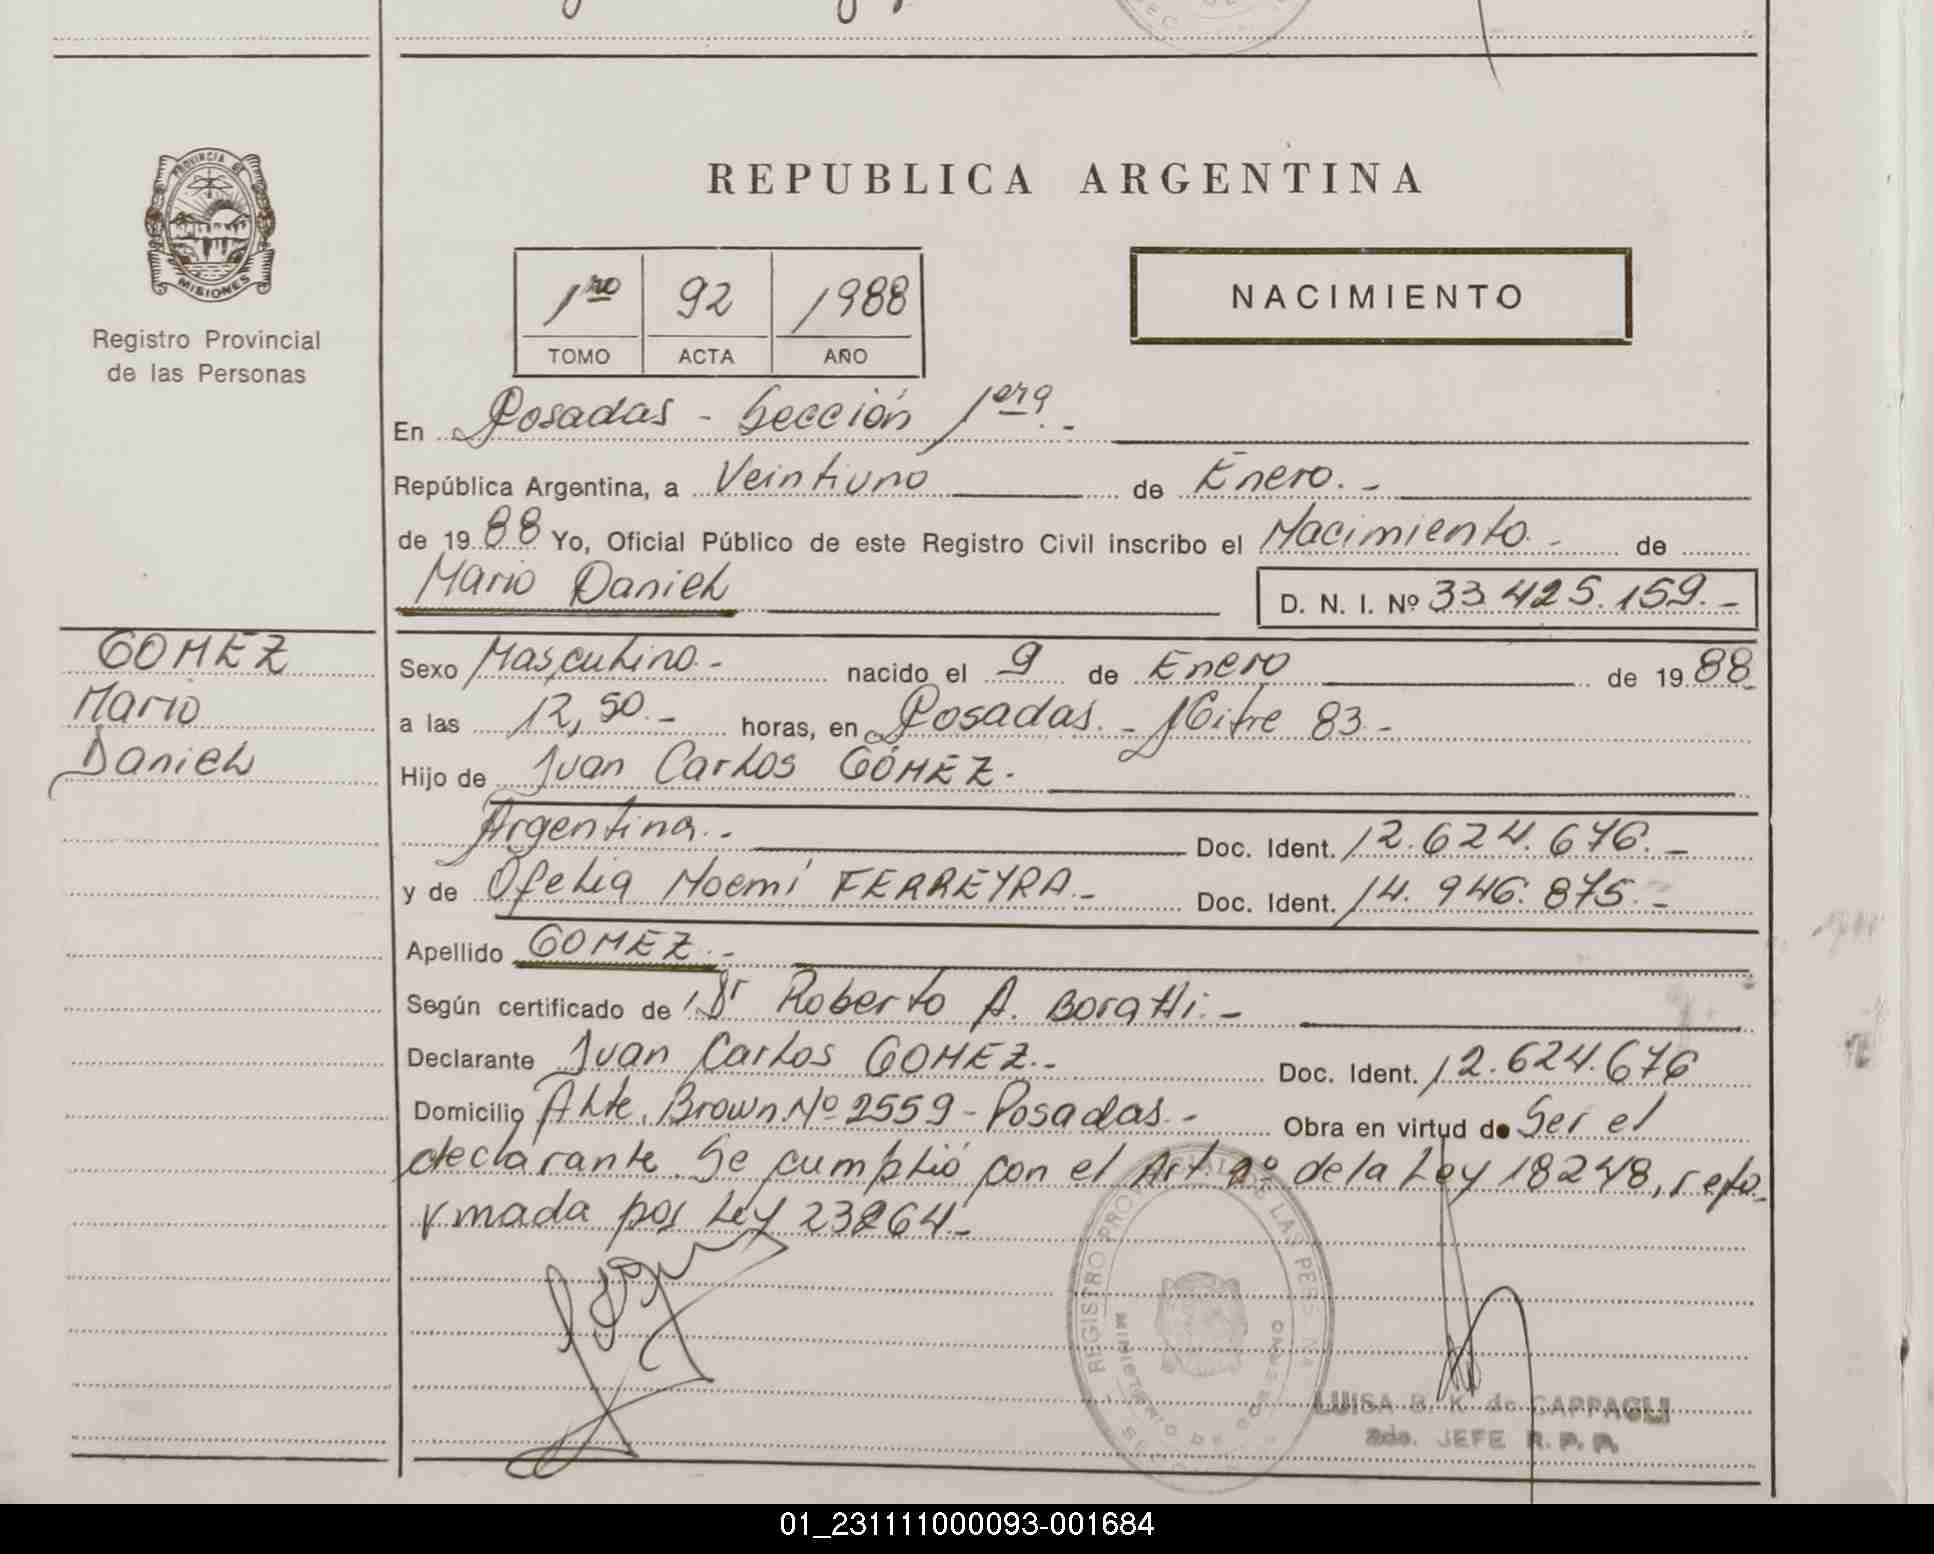 REPUBLICA ARGENTINA
PROVINCIA DE
MISIONES
Registro Provincial
de las Personas
1ro 92 1988
TOMO ACTA AÑO
NACIMIENTO
En Posadas - Sección 1era.-
República Argentina, a Veintiuno de Enero.-
de 1988 Yo, Oficial Público de este Registro Civil inscribo el Nacimiento.- de
Mario Daniel
D. N. I. Nº 33.425.159.-
GOMEZ
Mario
Daniel
Sexo Masculino.- nacido el 9 de Enero de 1988
a las 12,50.- horas, en Posadas.- Mitre 83.-
Hijo de Juan Carlos GÓMEZ.-
Argentina.- Doc. Ident. 12.624.676.-
y de Ofelia Noemí FERREYRA.- Doc. Ident. 14.946.875.-
Apellido GOMEZ.-
Según certificado de Dr Roberto A. Boratti.-
Declarante Juan Carlos GOMEZ.- Doc. Ident. 12.624.676
Domicilio Alte. Brown Nº 2559 - Posadas.- Obra en virtud de Ser el
declarante. Se cumplió con el Art. de la Ley 18248, refo-
rmada por Ley 23264.-
REGISTRO PROVINCIAL DE LAS PERSONAS
MINISTERIO DE GOBIERNO
LUISA B. K. de CAPPAGLI
2do. JEFE R. P. P.
01_231111000093-001684